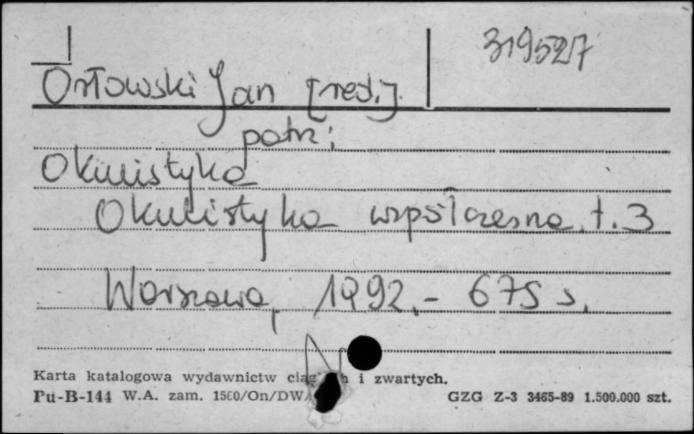 319527
Orłowski Jan [red.].
patrz:
Okulistyka
Okulistyka współczesna. t. 3
Warszawa, 1992.- 675 s.
Karta katalogowa wydawnictw i zwartych.
Pu-B-144 W.A. zam. 1560/On/DW GZG Z-3 3465-89 1.500.000 szt.